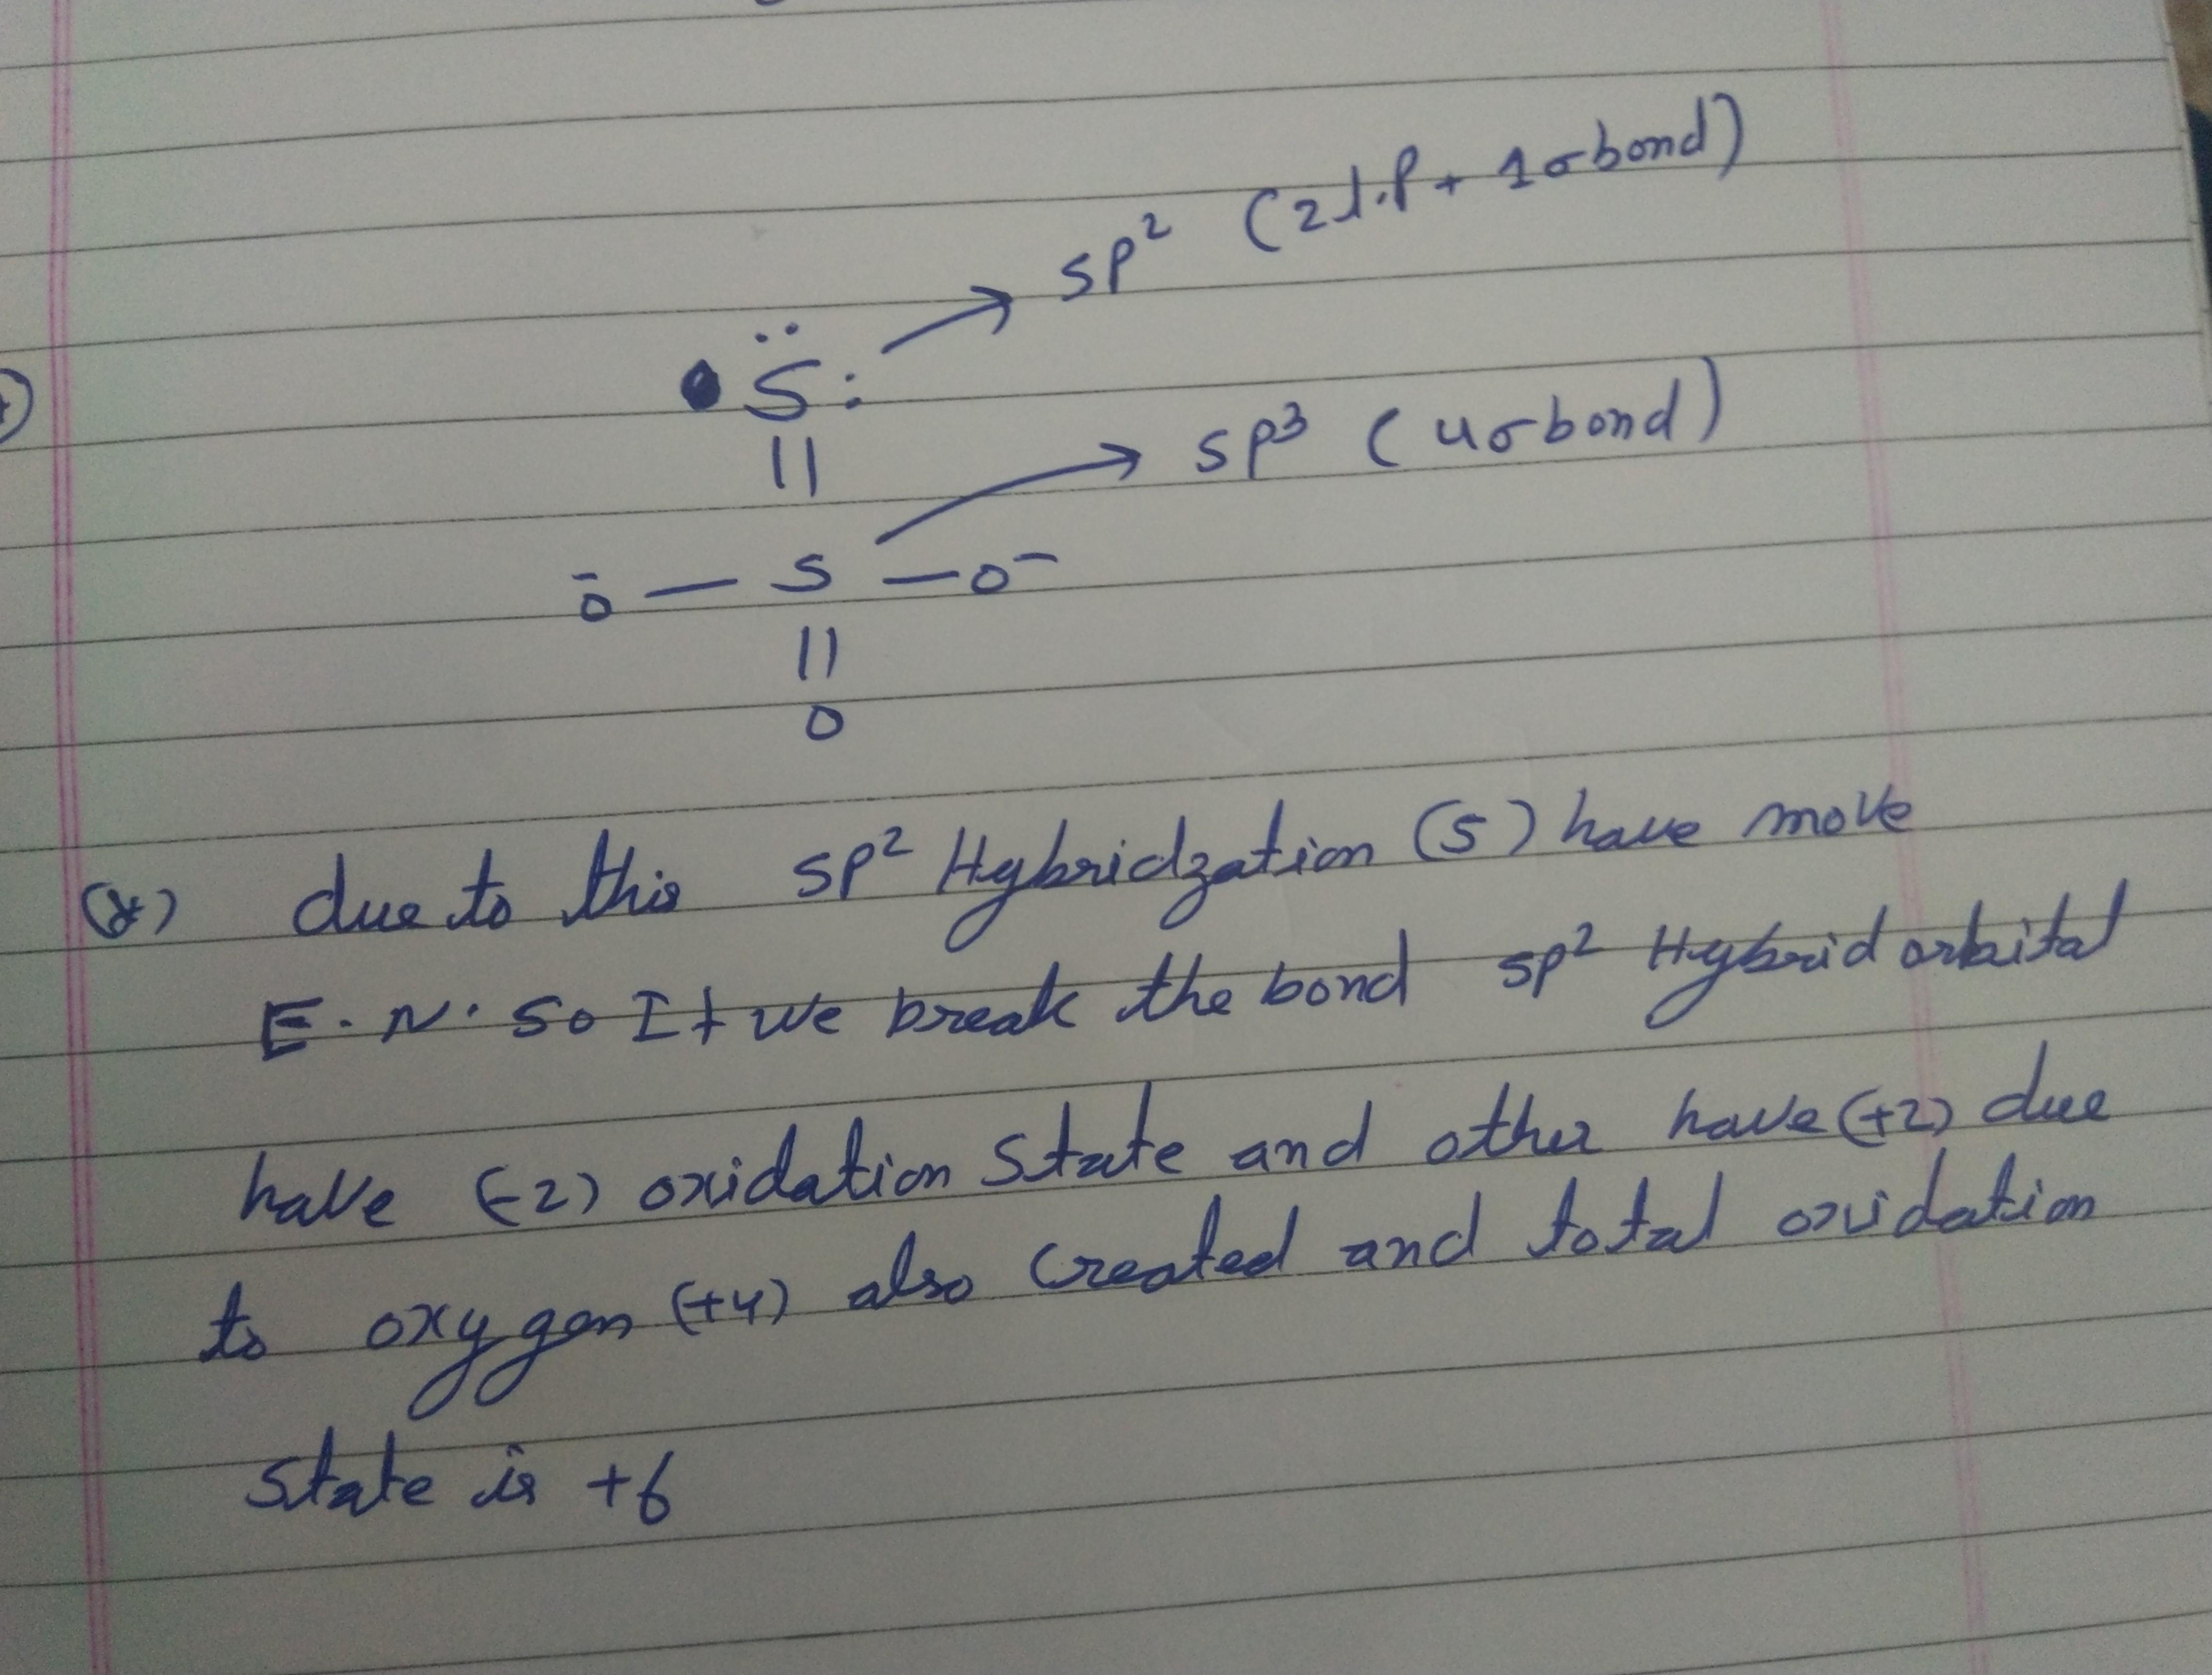 sp² (2l.p + 1σbond)
S
sp³ (4σbond)
O⁻ — S — O⁻
O
(*) due to this sp² Hybridzation (S) have move
E.N. So If we break the bond sp² Hybrid orbital
have (-2) oxidation state and other have (+2) due
to oxygen (+4) also created and total oxidation
state is +6